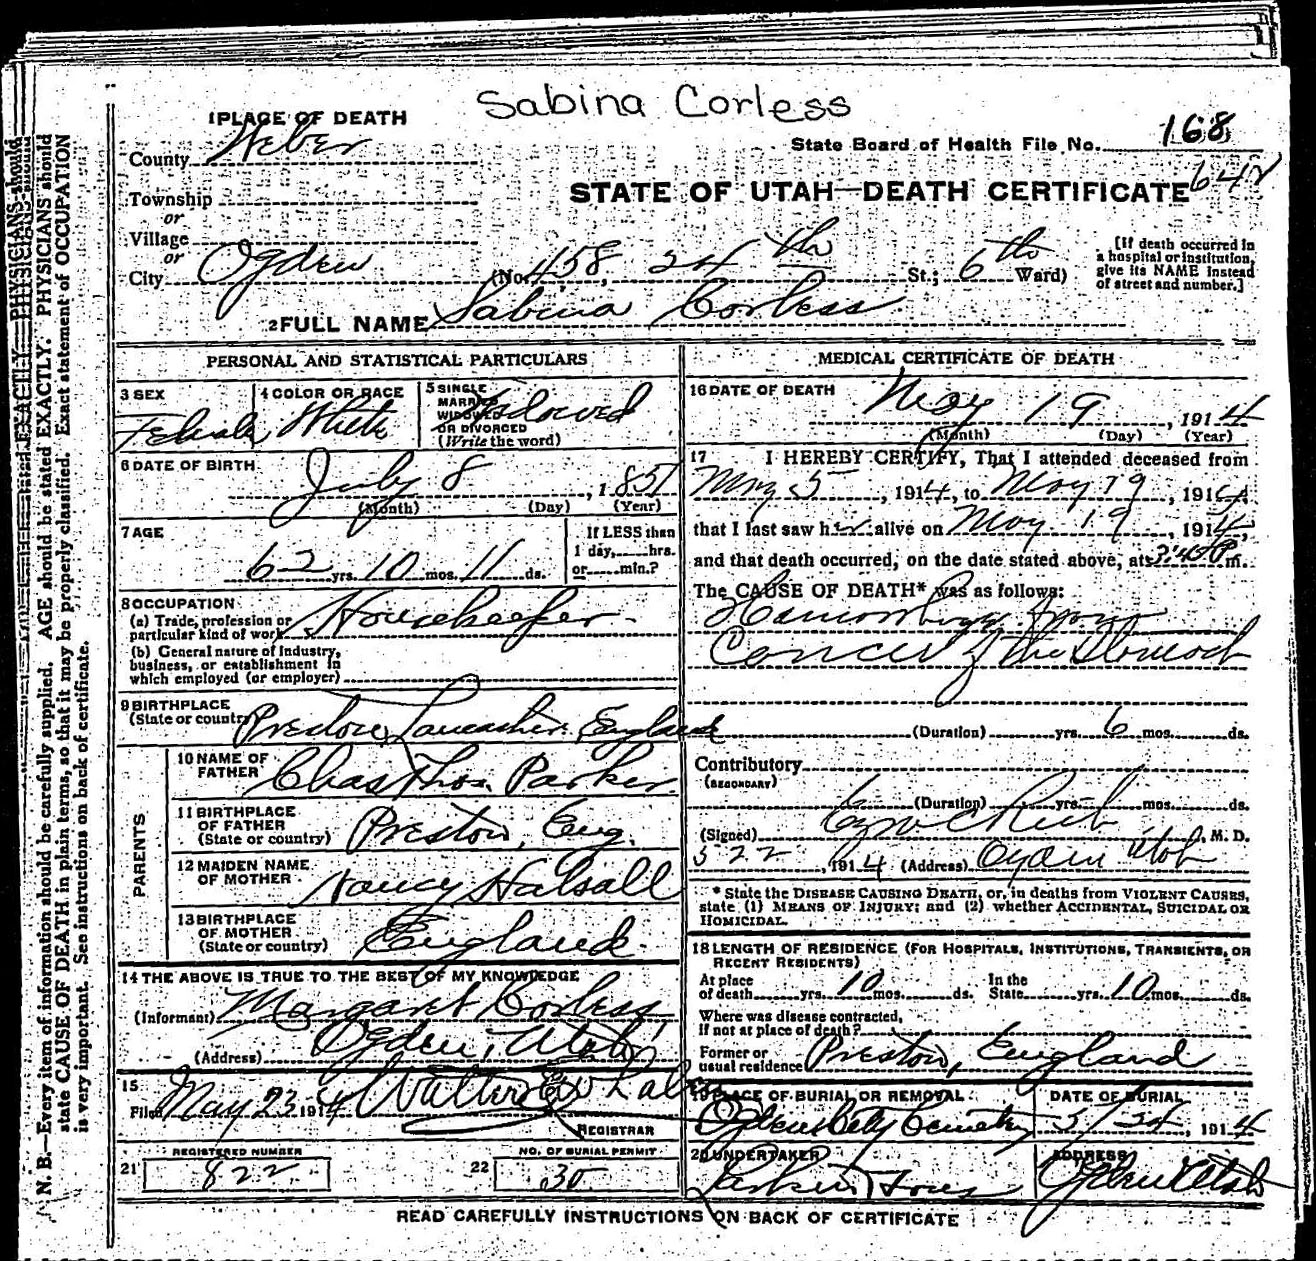 Sabina Corless
1 PLACE OF DEATH
County Weber
State Board of Health File No. 168
Township
or
Village
or
City Ogden (No. 458, 24th St.; 6th Ward)
STATE OF UTAH—DEATH CERTIFICATE 642
[If death occurred in
a hospital or institution,
give its NAME instead
of street and number.]
2 FULL NAME Sabina Corless
PERSONAL AND STATISTICAL PARTICULARS
3 SEX Female
4 COLOR OR RACE White
5 SINGLE
MARRIED
WIDOWED
OR DIVORCED
(Write the word) Widowed
6 DATE OF BIRTH
July 8, 1851
(Month) (Day) (Year)
7 AGE
62 yrs. 10 mos. 11 ds.
If LESS than
1 day, hrs.
or min.?
8 OCCUPATION
(a) Trade, profession or
particular kind of work Housekeeper
(b) General nature of Industry,
business, or establishment in
which employed (or employer)
9 BIRTHPLACE
(State or country) Preston, Lancashire, England
PARENTS
10 NAME OF
FATHER Chas Thos. Parker
11 BIRTHPLACE
OF FATHER
(State or country) Preston, Eng.
12 MAIDEN NAME
OF MOTHER Nancy Halsall
13 BIRTHPLACE
OF MOTHER
(State or country) England
14 THE ABOVE IS TRUE TO THE BEST OF MY KNOWLEDGE
(Informant) Margaret Corless
(Address) Ogden, Utah
15
Filed May 23 1914 Walter
REGISTRAR
REGISTERED NUMBER
21 822
NO. OF BURIAL PERMIT
22 30
MEDICAL CERTIFICATE OF DEATH
16 DATE OF DEATH
May 19, 1914
(Month) (Day) (Year)
17 I HEREBY CERTIFY, That I attended deceased from
May 5, 1914, to May 19, 1914
that I last saw her alive on May 19, 1914,
and that death occurred, on the date stated above, at P.m.
The CAUSE OF DEATH* was as follows:
Hemorrhage from
Cancer of the Stomach
(Duration) yrs. 6 mos. ds.
Contributory
(SECONDARY)
(Duration) yrs. mos. ds.
(Signed) Rich, M. D.
5 22, 1914 (Address) Ogden Utah
* State the DISEASE CAUSING DEATH, or, in deaths from VIOLENT CAUSES,
state (1) MEANS OF INJURY; and (2) whether ACCIDENTAL, SUICIDAL OR
HOMICIDAL.
18 LENGTH OF RESIDENCE (FOR HOSPITALS, INSTITUTIONS, TRANSIENTS, OR
RECENT RESIDENTS)
At place
of death yrs. 10 mos. ds.
In the
State yrs. 10 mos. ds.
Where was disease contracted,
If not at place of death?
Former or
usual residence Preston, England
19 PLACE OF BURIAL OR REMOVAL
Ogden City Cemetery
DATE OF BURIAL
5/24, 1914
20 UNDERTAKER
Larkin & Sons
ADDRESS
Ogden Utah
READ CAREFULLY INSTRUCTIONS ON BACK OF CERTIFICATE
N. B.—Every item of information should be carefully supplied. AGE should be stated EXACTLY. PHYSICIANS should
state CAUSE OF DEATH in plain terms, so that it may be properly classified. Exact statement of OCCUPATION
is very important. See instructions on back of certificate.